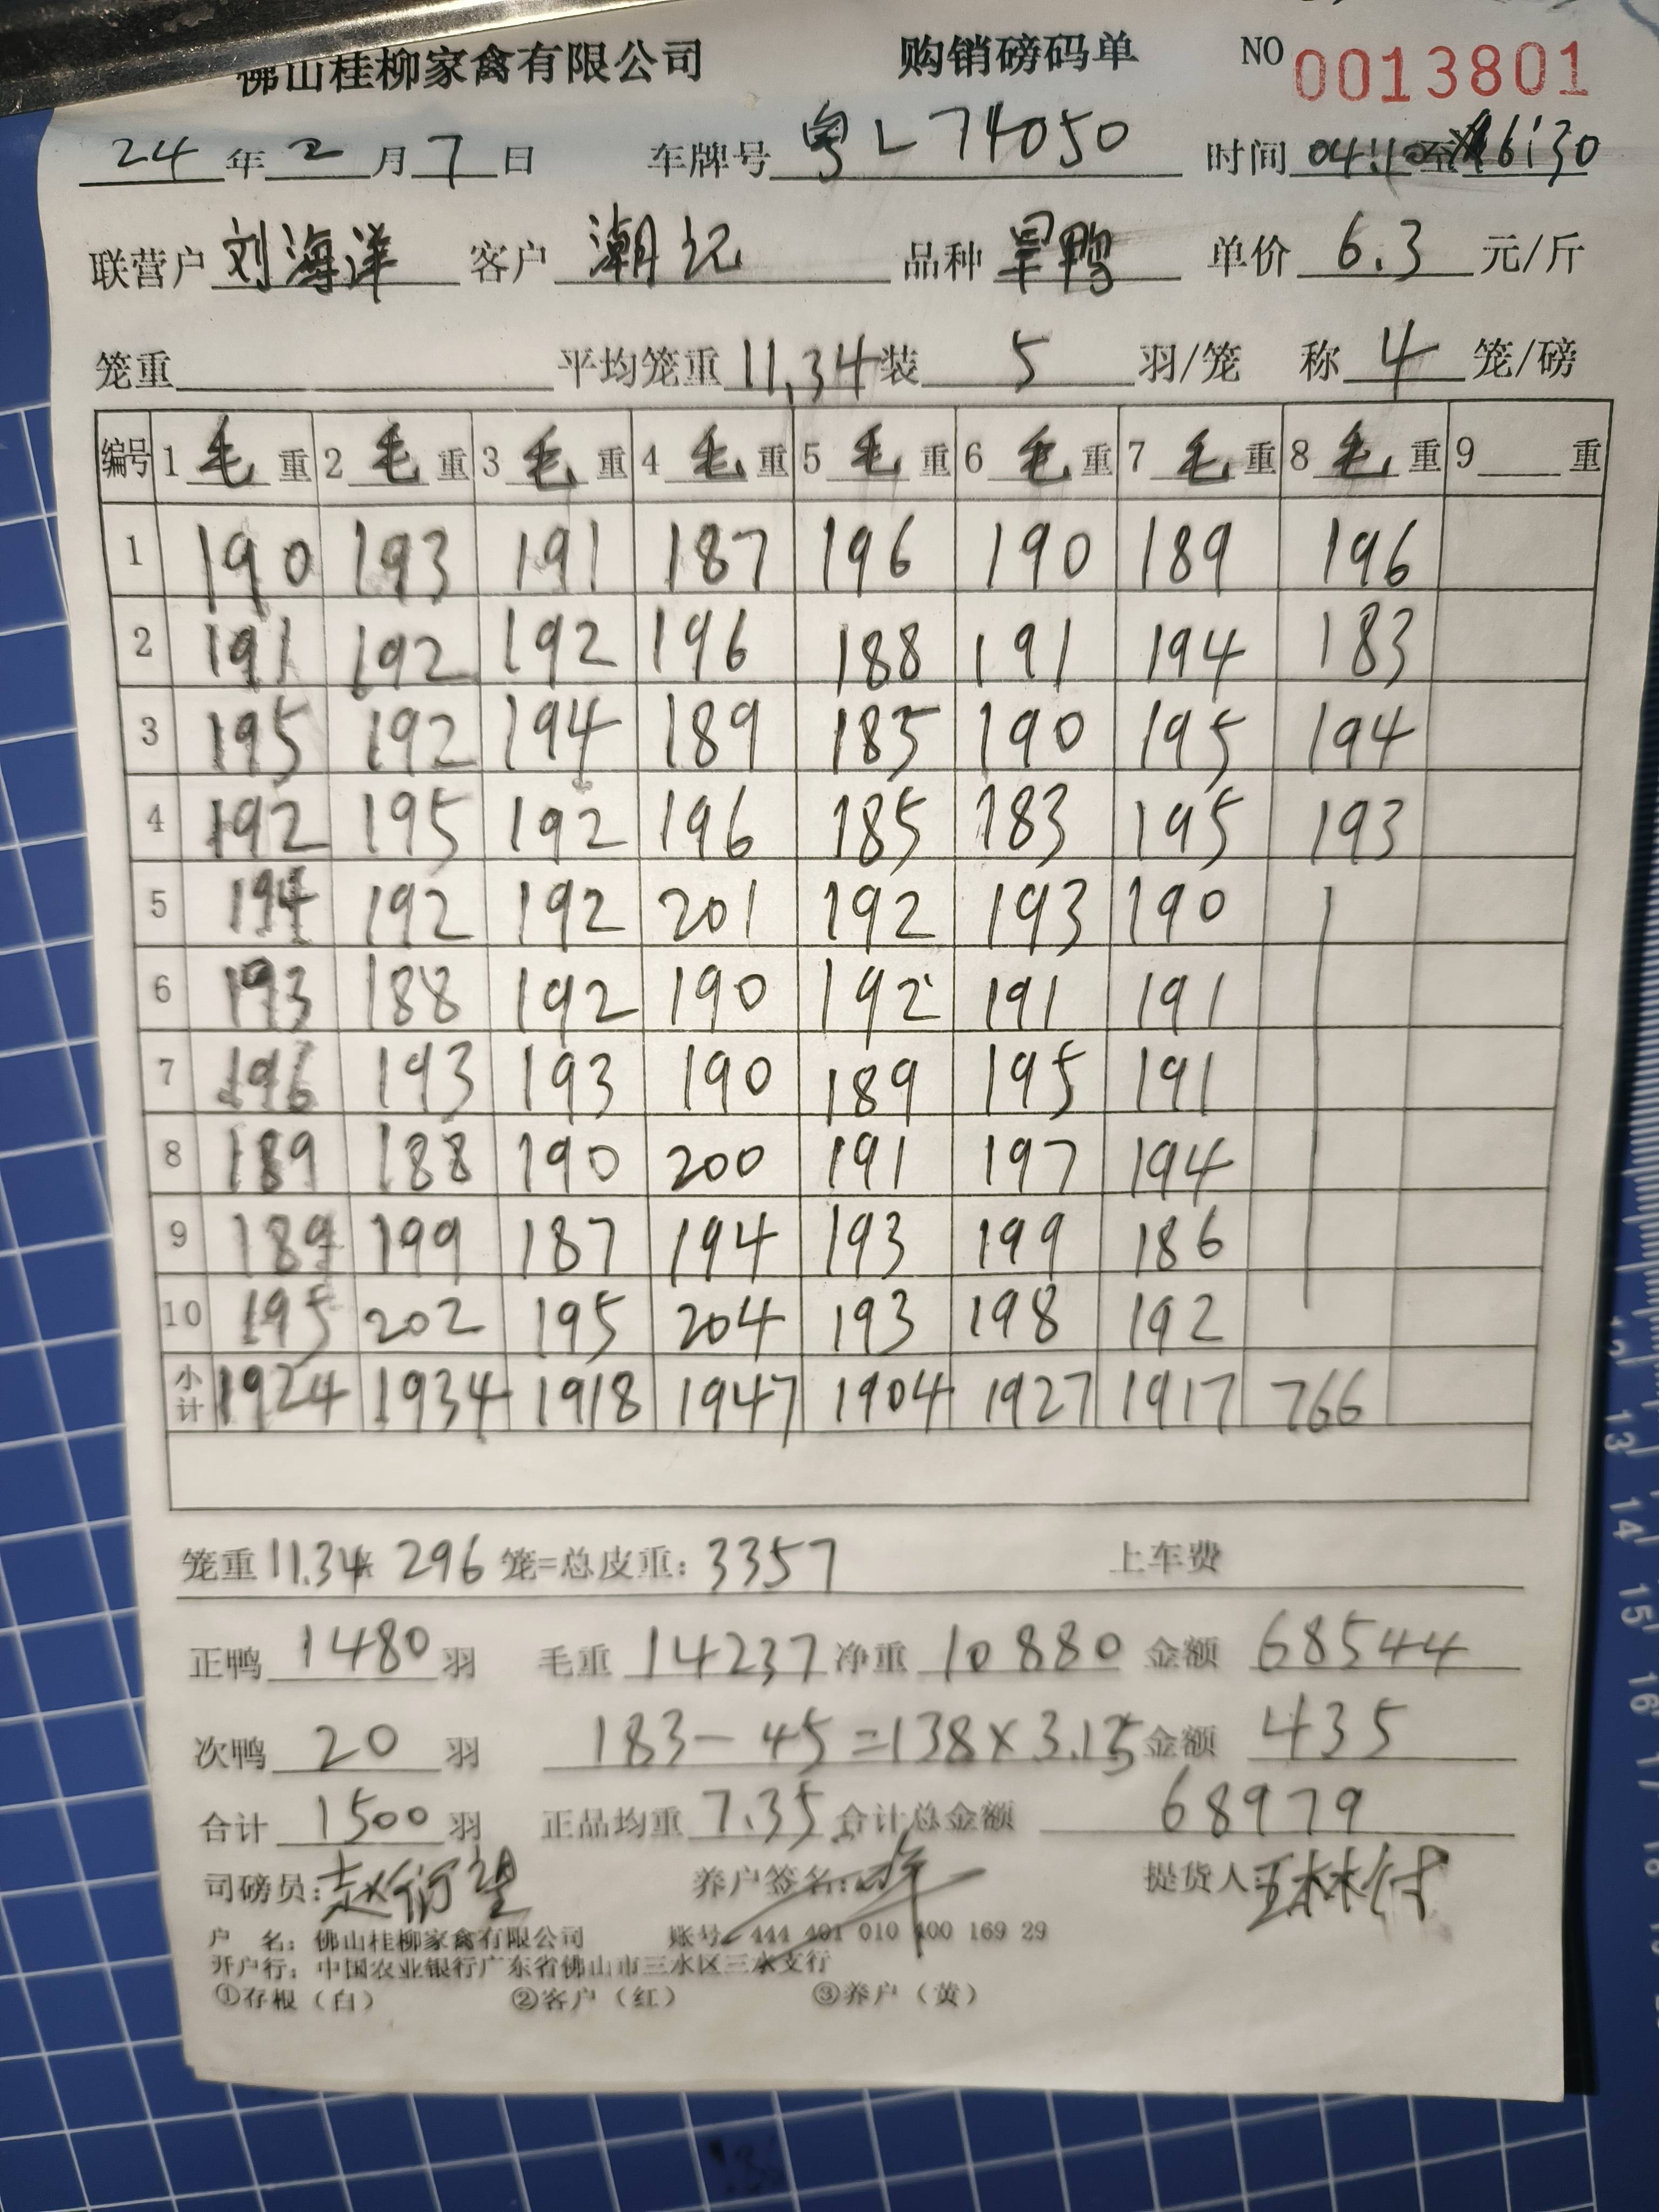 佛山桂柳家禽有限公司 购销磅码单 NO 0013801
24 年 2 月 7 日 车牌号 粤L74050 时间 04:10 至 6:30
联营户 刘海洋 客户 潮记 品种 旱鸭 单价 6.3 元/斤
笼重 平均笼重 11.34 装 5 羽/笼 称 4 笼/磅
编号 1 毛 重 2 毛 重 3 毛 重 4 毛 重 5 毛 重 6 毛 重 7 毛 重 8 毛 重 9 重
1 190 193 191 187 196 190 189 196
2 191 192 192 196 188 191 194 183
3 195 192 194 189 185 190 195 194
4 192 195 192 196 185 183 195 193
5 194 192 192 201 192 193 190
6 193 188 192 190 192 191 191
7 196 193 193 190 189 195 191
8 189 188 190 200 191 197 194
9 189 199 187 194 193 199 186
10 195 202 195 204 193 198 192
小计 1924 1934 1918 1947 1904 1927 1917 766
笼重 11.34× 296 笼=总皮重: 3357 上车费
正鸭 1480 羽 毛重 14237 净重 10880 金额 68544
次鸭 20 羽 183-45=138×3.15 金额 435
合计 1500 羽 正品均重 7.35 合计总金额 68979
司磅员: 养户签名: 提货人:
户 名: 佛山桂柳家禽有限公司 账号: 444 401 010 400 169 29
开户行: 中国农业银行广东省佛山市三水区三水支行
①存根（白） ②客户（红） ③养户（黄）
12
13
14
15
16
17
18
19